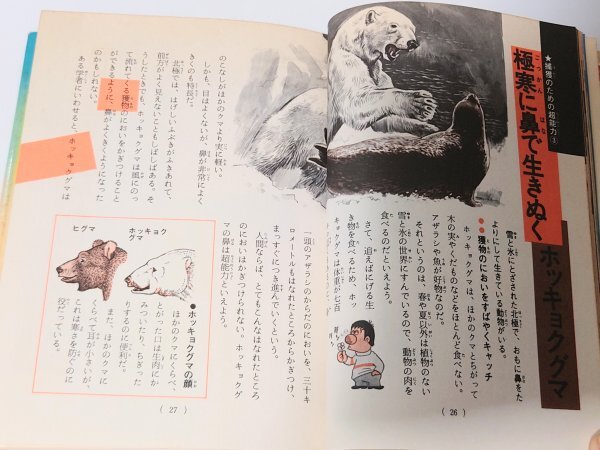 ★捕獲のための超能力③
極寒に鼻で生きぬく
ごっかん はな
ホッキョクグマ
雪と氷にとざされた北極で、おもに鼻をた
よりにして生きている動物がいる。
●●獲物のにおいをすばやくキャッチ
ホッキョクグマは、ほかのクマとちがって
木の実やくだものなどをほとんど食べない。
アザラシや魚が好物なのだ。
それというのは、春や夏以外は植物のない
雪と氷の世界にすんでいるので、動物の肉を
食べるのだといえよう。
さて、追えばにげる生
き物を食べるため、ホッ
キョクグマは体重が七百
(26)
のこなしがほかのクマより実に軽い。
しかも、目はよくないが、鼻が非常によく
きくのも特長だ。
北極では、はげしいふぶきがふきあれて、
前方がよく見えないこともしばしばある。そ
うしたときでも、ホッキョクグマは風にのっ
て流れてくる獲物のにおいをかぎつけること
ができるように、鼻がよくきくようになった
のかもしれない。
ある学者にいわせると、ホッキョクグマは
一頭のアザラシのからだのにおいを、三十キ
ロメートルもはなれたところからかぎつけ、
まっすぐにつき進んでいくという。
人間ならば、とてもこんなはなれたところ
のにおいはかぎつけられない。ホッキョクグ
マの鼻は超能力といえよう。
●ホッキョクグマの顔
ほかのクマにくらべ、
とがった口は生肉にか
みついたり、ちぎった
りするのに便利だ。
また、ほかのクマに
くらべて耳が小さいが、
これは寒さを防ぐのに
役だっている。
ホッキョク
グマ
ヒグマ
(27)